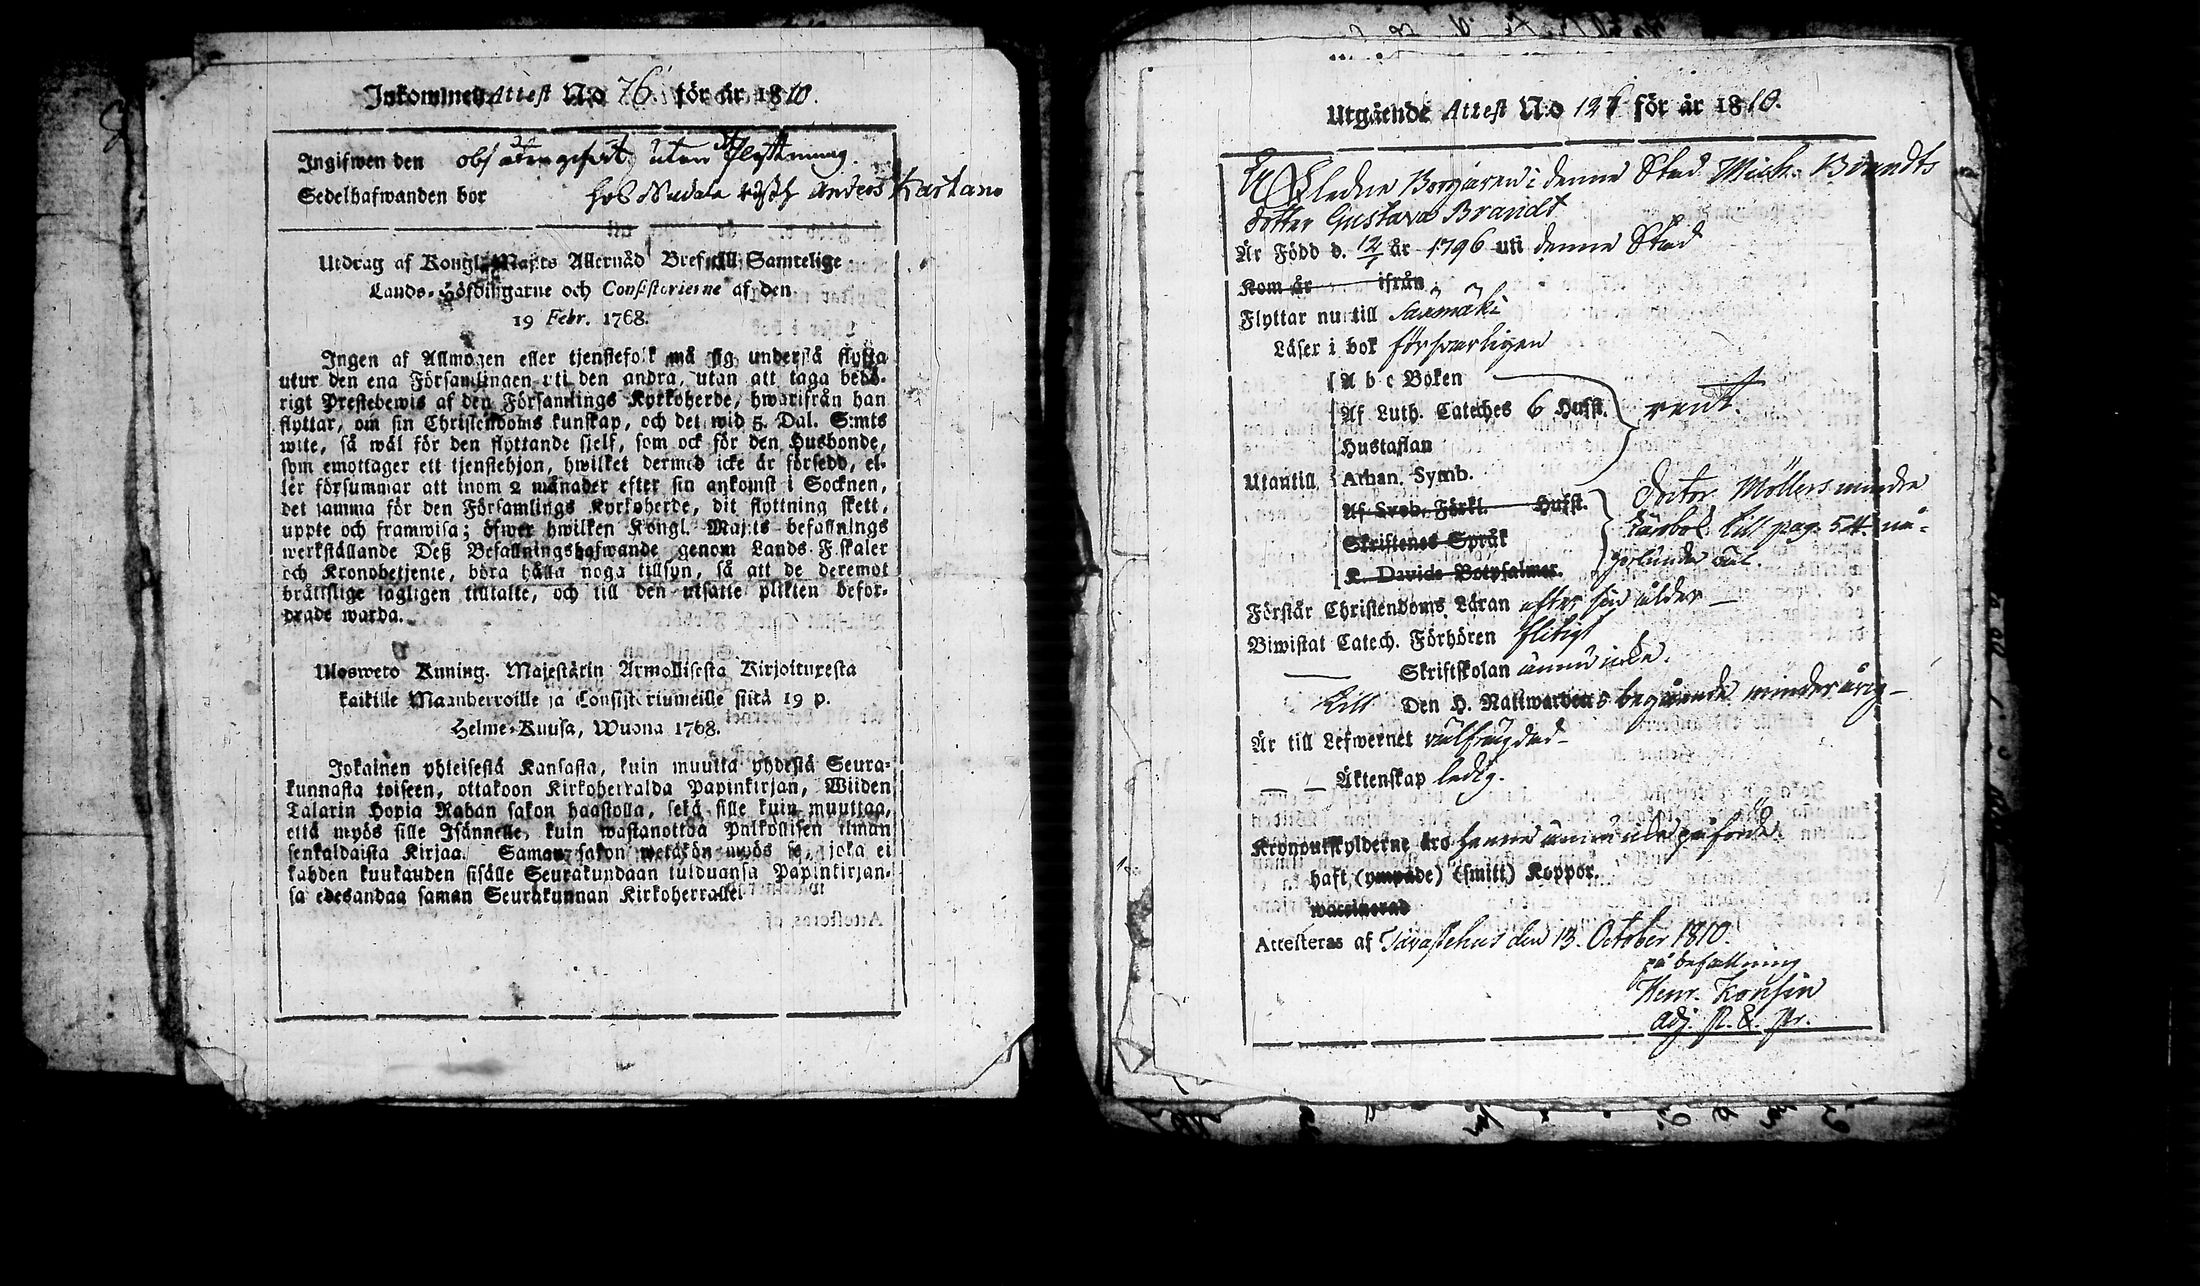 Inkommen Attest N:o 76 för år 1810.
Ingifwen den obs uten flyttning.
Sedelhafwanden bor hos Anders Kartano
Utdrag af Kongl. Maj:ts Allernåd Bref till Samtelige
Lands-Höfdingarne och Consistorierne af den
19 Febr. 1768.
Ingen af Allmogen eller tjenstefolk må sig understå flytta
utur den ena Församlingen uti den andra, utan att taga behö-
rigt Prestebewis af den Församlings Kyrkoherde, hwarifrån han
flyttar, om sin Christendoms kunskap, och det wid 5. Dal. S:mts
wite, så wäl för den flyttande sielf, som ock för den Husbonde,
som emottager ett tjenstehjon, hwilket dermed icke är försedd, el-
ler försummar att inom 2 månader efter sin ankomst i Socknen,
det samma för den Församlings Kyrkoherde, dit flyttning skett,
uppte och framwisa; öfwer hwilken Kongl. Maj:ts befallnings
werkställande Deß Befallningshafwande genom Lands-Fiskaler
och Kronobetjente, böra hålla noga tillsyn, så att de deremot
bråttslige lagligen tilltalte, och till den utsatte plikten befor-
drade warda.
Ulosweto Kuning. Majestätin Armollisesta Kirjoituxesta
kaikille Maanherroille ja Consistoriumeille siitä 19 p.
Helme-Kuusa, Wuona 1768.
Jokainen yhteisestä Kansasta, kuin muutta yhdestä Seura-
kunnasta toiseen, ottakoon Kirkoherralda Papinkirjan, Wiiden
Talarin Hopia Rahan sakon haastolla, sekä sille kuin muuttaa,
että myös sille Isännelle, kuin wastanottaa Palkollisen ilman
senkaldaista Kirjaa. Saman sakon wetäkön myös se, joka ei
kahden kuukauden sisälle Seurakundaan tulduansa Papinkirjan-
sa edesandaa saman Seurakunnan Kirkoherralle.
Utgående Attest N:o 126 för år 1810.
Afledne Borgaren i denne Stad Mich. Brandts
dotter Gustava Brandt
Är Född d. 12/7 år 1796 uti denne Stad
Kom år ifrån
Flyttar nu till Saxmäki
Läser i bok försvarligen
A b c Boken
Af Luth. Cateches 6 Hufst. rent.
Hustaflan
Utantill Athan. Symb.
Af Sveb. Förkl. Hufst. Doctor Möllers mindre
Skriftenes Språk Lärobok till pag. 54 nå-
K. Davids Botpsalmer. gorlunda väl.
Förstår Christendoms Läran efter sin ålder
Biwistat Catech. Förhören flitigt
Skriftskolan ännu icke.
till Den H. Nattwardens begående minderårig
Är till Lefwernet välfrägdad
Äktenskap ledig.
Kronoutskylderne äro henne ännu icke påförde.
haft (ympade) (smitt) Koppor.
waccinerad
Attesteras af Tavastehus den 13. October 1810.
på befallning
Henr. Konsin
Adj. P. & Pr.